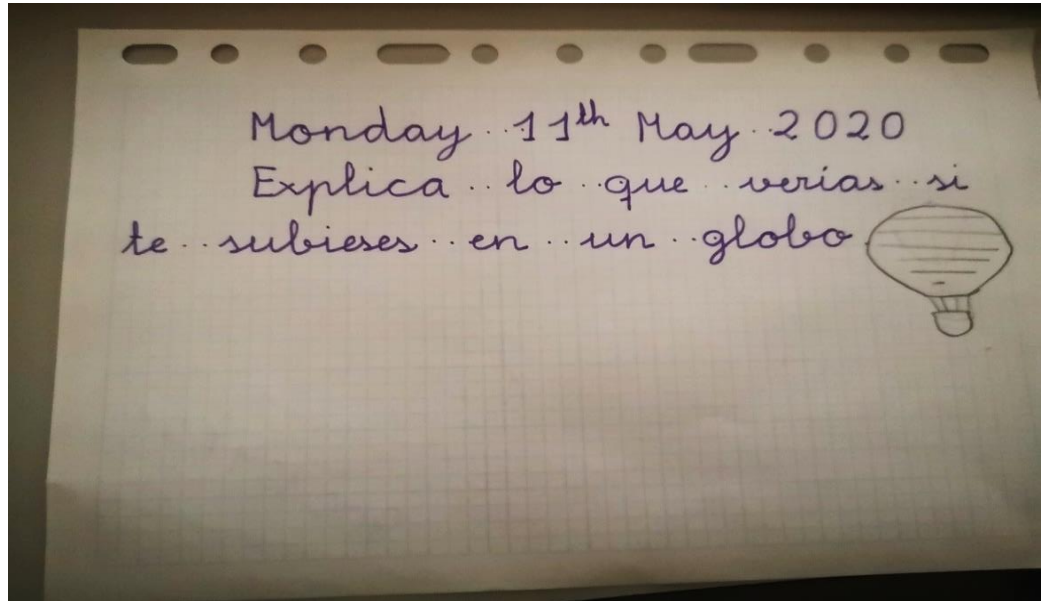 Monday 11th May 2020
Explica lo que verías si
te subieses en un globo